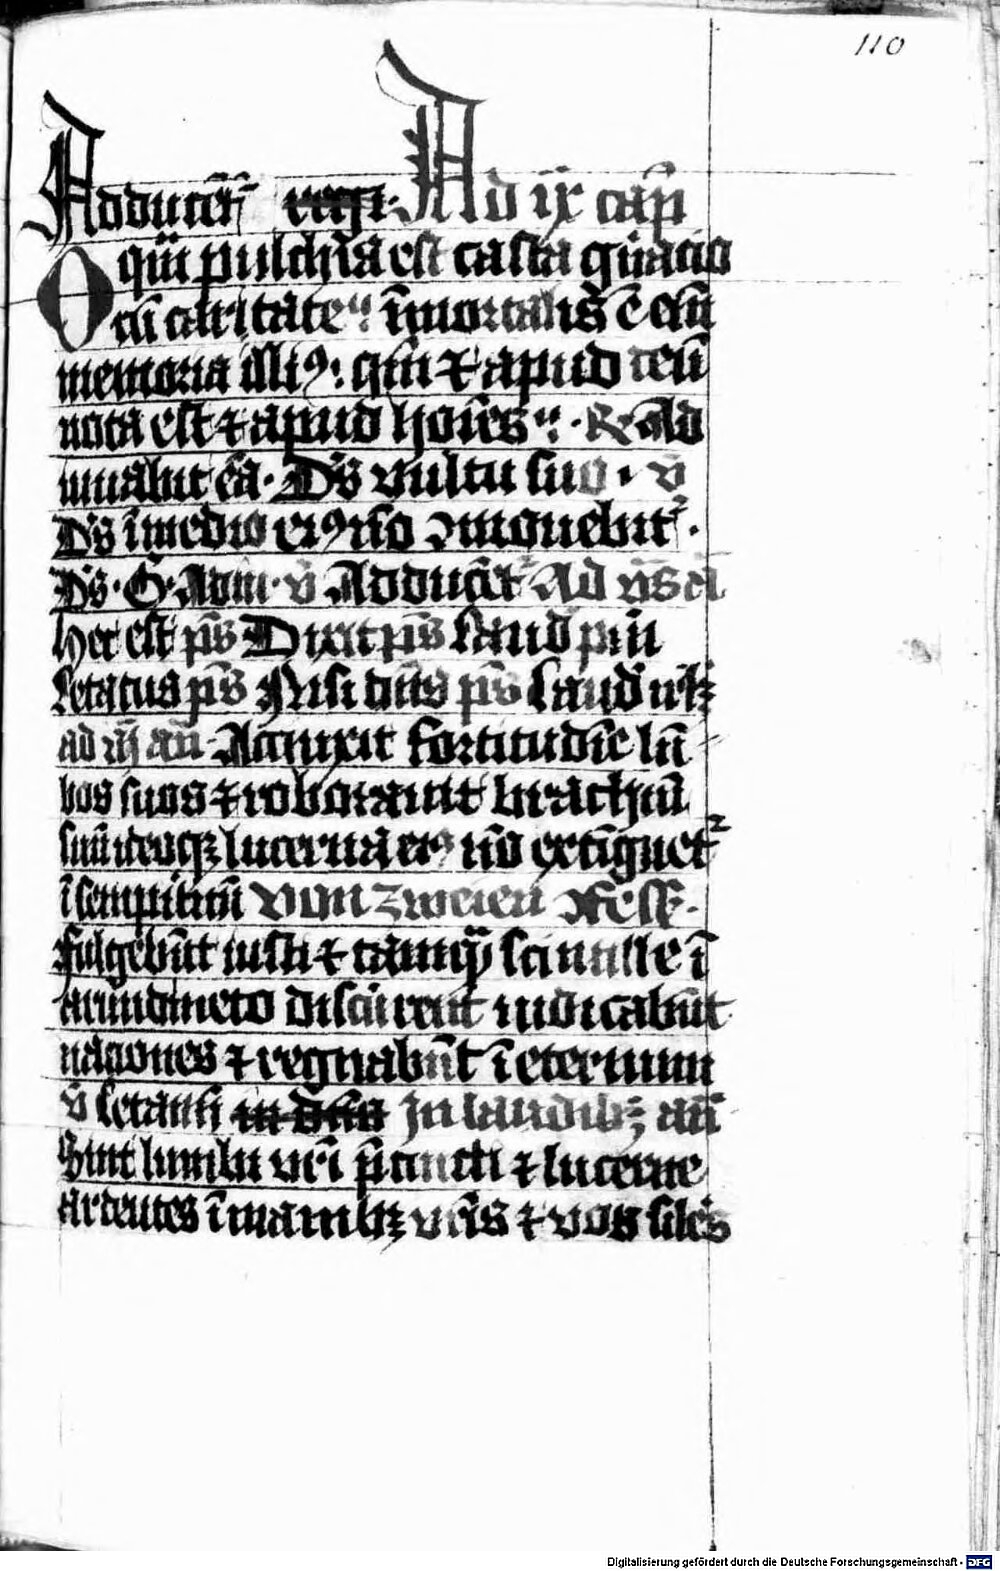 110
Adducēt᷑ regi. Ad ix cap̄
O qm̄ pulchra est casta gn̄acio
cū caritate ī mortalis ē em̄
memoria illiꝰ: qm̄ ⁊ apud deū
nota est ⁊ apud hoīes. R Ad
iuuabit eā. Ds̄ vultu suo. v̄
Ds̄ ī medio eiꝰ nō ꝯmouebit᷑.
Ds̄. G. Adiu. v̄ Adducēt᷑ Ad vs̄
Hec est ps̄ Dixit ps̄ Laud pu
Letatus ps̄ Nisi dn̄s ps̄ Laud
ad iij an̄. Accinxit fortitudīe lū
bos suos ⁊ roborauit brachiū
suū ideoqꝫ lucerna eiꝰ nō extīguet᷑
ī sempit̄nū Von zweien
Fulgebūt iusti ⁊ tamqͣ scintille ī
arundineto discurrent iudicabūt
naciones ⁊ regnabūt ī eternum
v̄ Letamī in dn̄o In laudibꝫ an̄
Sint lumbi vr̄i p̄cincti ⁊ lucerne
ardentes ī manibꝫ vr̄is ⁊ vos siles
Digitalisierung gefördert durch die Deutsche Forschungsgemeinschaft - DFG